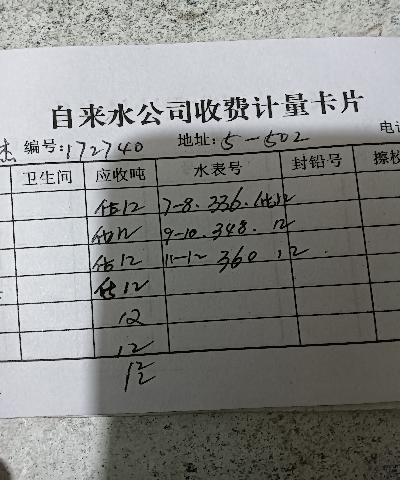 自来水公司收费计量卡片
杰 编号:172740 地址: 5-502 电话
卫生间 应收吨 水表号 封铅号 擦校
估12 7-8. 336. 估12
估12 9-10. 348. 12
估12 11-12 360. 12
估12
12
12
12